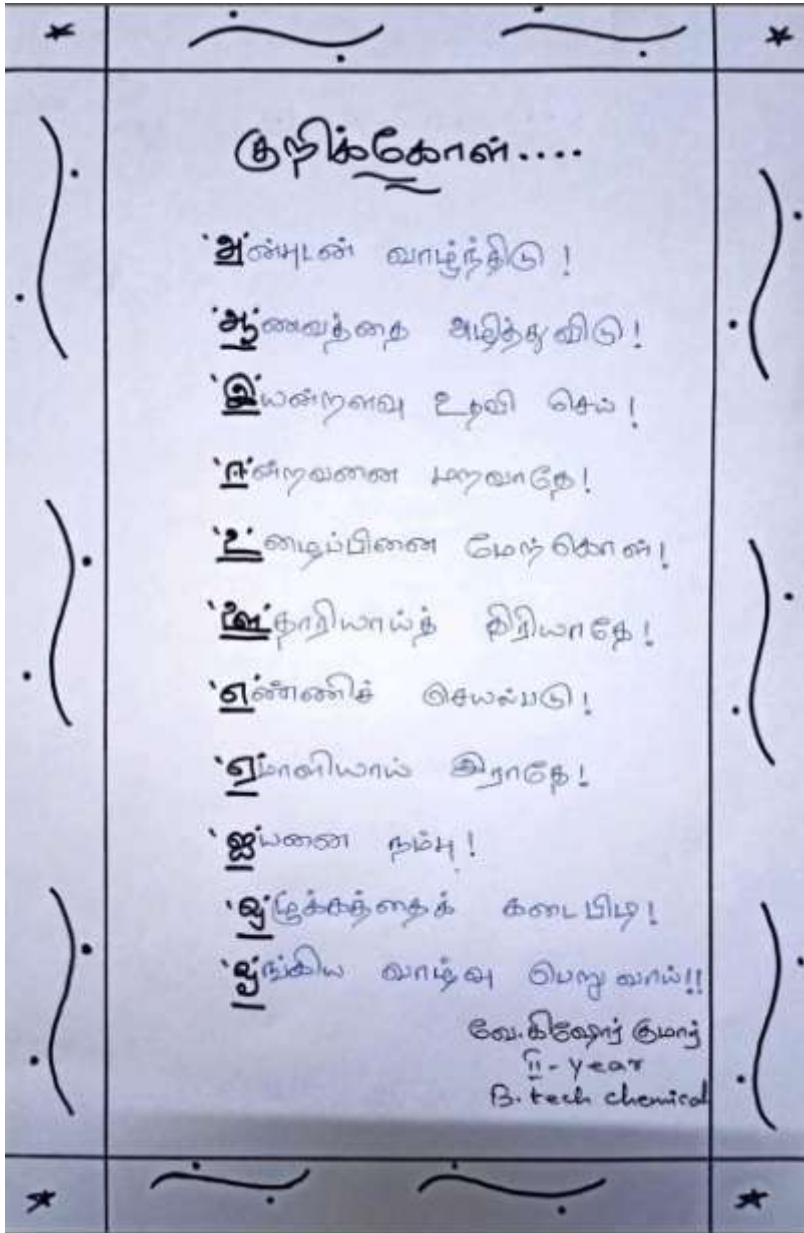 குறிக்கோள்....
'அ'ன்புடன் வாழ்ந்திடு!
'ஆ'ணவத்தை அழித்துவிடு!
'இ'யன்றளவு உதவி செய்!
'ஈ'ன்றவனை மறவாதே!
'உ'ழைப்பினை மேற்கொள்!
'ஊ'தாரியாய்த் திரியாதே!
'எ'ண்ணிச் செயல்படு!
'ஏ'மாளியாய் இராதே!
'ஐ'யனை நம்பு!
'ஒ'ழுக்கத்தைக் கடைபிடி!
'ஓ'ங்கிய வாழ்வு பெறுவாய்!!
வே.கிஷோர் குமார்
II - year
B. tech chemical